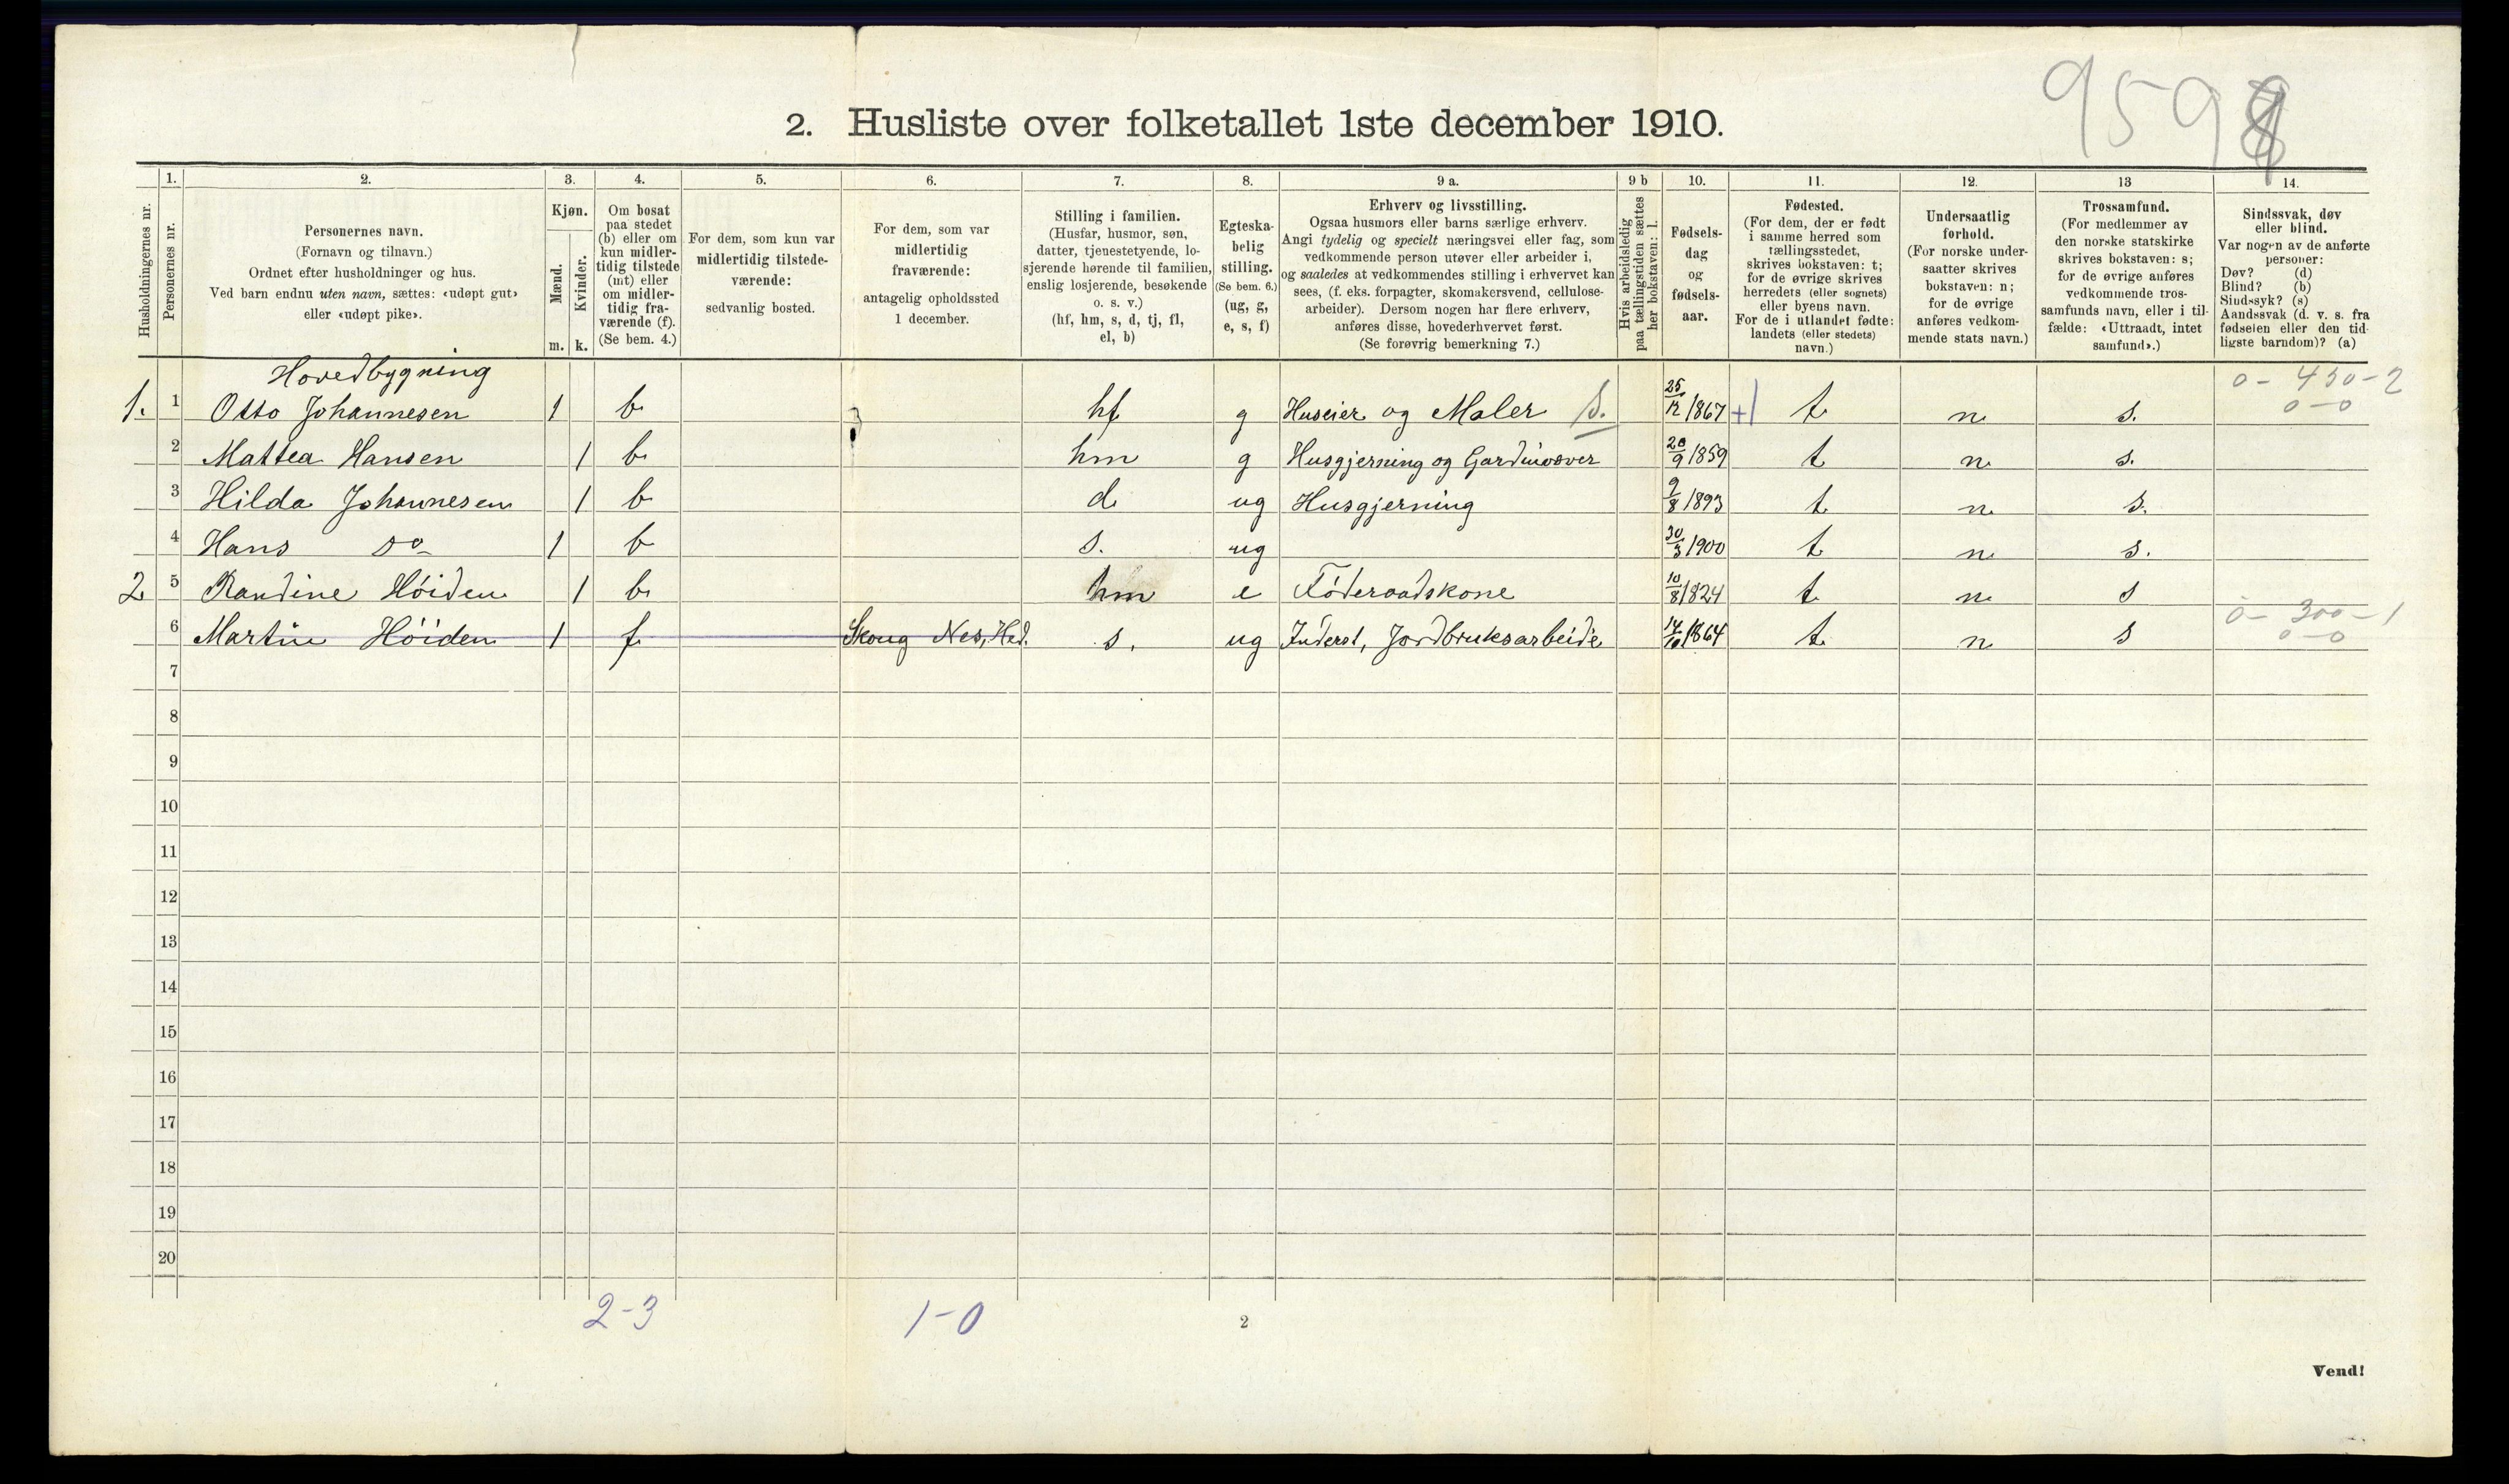 959
2. Husliste over folketallet 1ste december 1910.
Husholdningernes nr.
1. Personernes nr.
2. Personernes navn. (Fornavn og tilnavn.) Ordnet efter husholdninger og hus. Ved barn endnu uten navn, sættes: «udøpt gut» eller «udøpt pike».
3. Kjøn. Mænd. m. Kvinder. k.
4. Om bosat paa stedet (b) eller om kun midler-tidig tilstede (mt) eller om midler-tidig fra-værende (f). (Se bem. 4.)
5. For dem, som kun var midlertidig tilstede-værende: sedvanlig bosted.
6. For dem, som var midlertidig fraværende: antagelig opholdssted 1 december.
7. Stilling i familien. (Husfar, husmor, søn, datter, tjenestetyende, lo-sjerende hørende til familien, enslig losjerende, besøkende o. s. v.) (hf, hm, s, d, tj, fl, el, b)
8. Egteska-belig stilling. (Se bem. 6.) (ug, g, e, s, f)
9 a. Erhverv og livsstilling. Ogsaa husmors eller barns særlige erhverv. Angi tydelig og specielt næringsvei eller fag, som vedkommende person utøver eller arbeider i, og saaledes at vedkommendes stilling i erhvervet kan sees, (f. eks. forpagter, skomakersvend, cellulose-arbeider). Dersom nogen har flere erhverv, anføres disse, hovederhvervet først. (Se forøvrig bemerkning 7.)
9 b Hvis arbeidsledig paa tællingstiden sættes her bokstaven: l.
10. Fødsels-dag og fødsels-aar.
11. Fødested. (For dem, der er født i samme herred som tællingsstedet, skrives bokstaven: t; for de øvrige skrives herredets (eller sognets) eller byens navn. For de i utlandet fødte: landets (eller stedets) navn.)
12. Undersaatlig forhold. (For norske under-saatter skrives bokstaven: n; for de øvrige anføres vedkom-mende stats navn.)
13 Trossamfund. (For medlemmer av den norske statskirke skrives bokstaven: s; for de øvrige anføres vedkommende tros-samfunds navn, eller i til-fælde: «Uttraadt, intet samfund».)
14. Sindssvak, døv eller blind. Var nogen av de anførte personer: Døv? (d) Blind? (b) Sindssyk? (s) Aandssvak (d. v. s. fra fødselen eller den tid-ligste barndom)? (a)
Hovedbygning
0 - 450 - 2
1. 1 Otto Johannesen 1 b hf g Huseier og Maler S. 25/12 1867 +1 t n s. 0 - 0
2 Mattea Hansen 1 b hm g Husgjerning og Gardinvæver 20/9 1859 t n s.
3 Hilda Johannesen 1 b d ug Husgjerning 9/8 1893 t n s.
4 Hans do 1 b s. ug 30/3 1900 t n s.
2 5 Randine Höiden 1 b hm e Föderaadskone 10/8 1824 t n s
0 - 300 - 1
6 Martin Höiden 1 f Skoug Nes, Hed. s. ug Inderst, Jordbruksarbeide 14/10 1864 t n s 0 - 0
7
8
9
10
11
12
13
14
15
16
17
18
19
20
2-3 1-0
2
Vend!